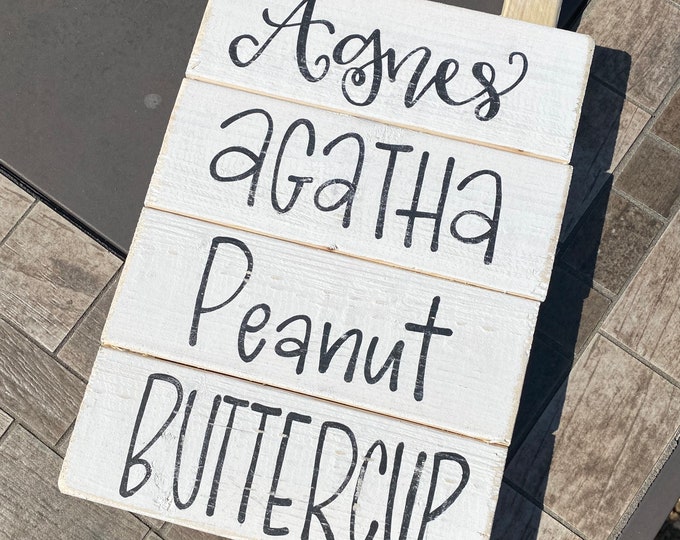 Agnes
aGatHa
Peanut
BUTTERCUP